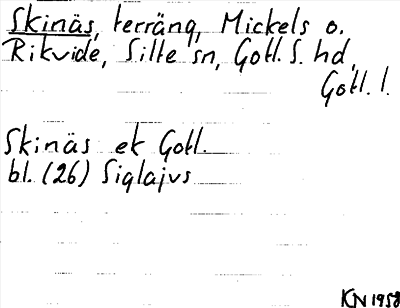 Skinäs, terräng, Mickels o.
Rikvide, Silte sn, Gotl. S. hd,
Gotl. l.
Skinäs ek Gotl.
bl. (26) Siglajvs
KN 1958